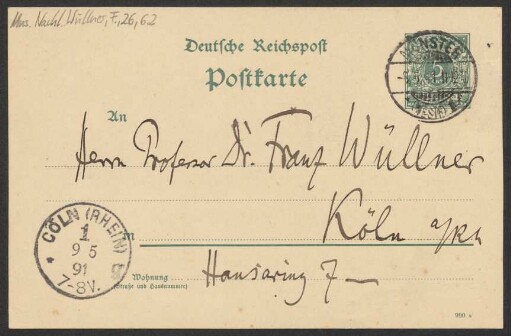 Mus. Nachl. Wüllner, F., 26, 62
Deutsche Reichspost
Postkarte
MÜNSTER
5
An
Herrn Professor Dr. Franz Wüllner
Köln a/Rh
in
Hansaring 7 —
Wohnung
(Straße und Hausnummer)
CÖLN (RHEIN)
1
9 5
91
7-8V.
900 a